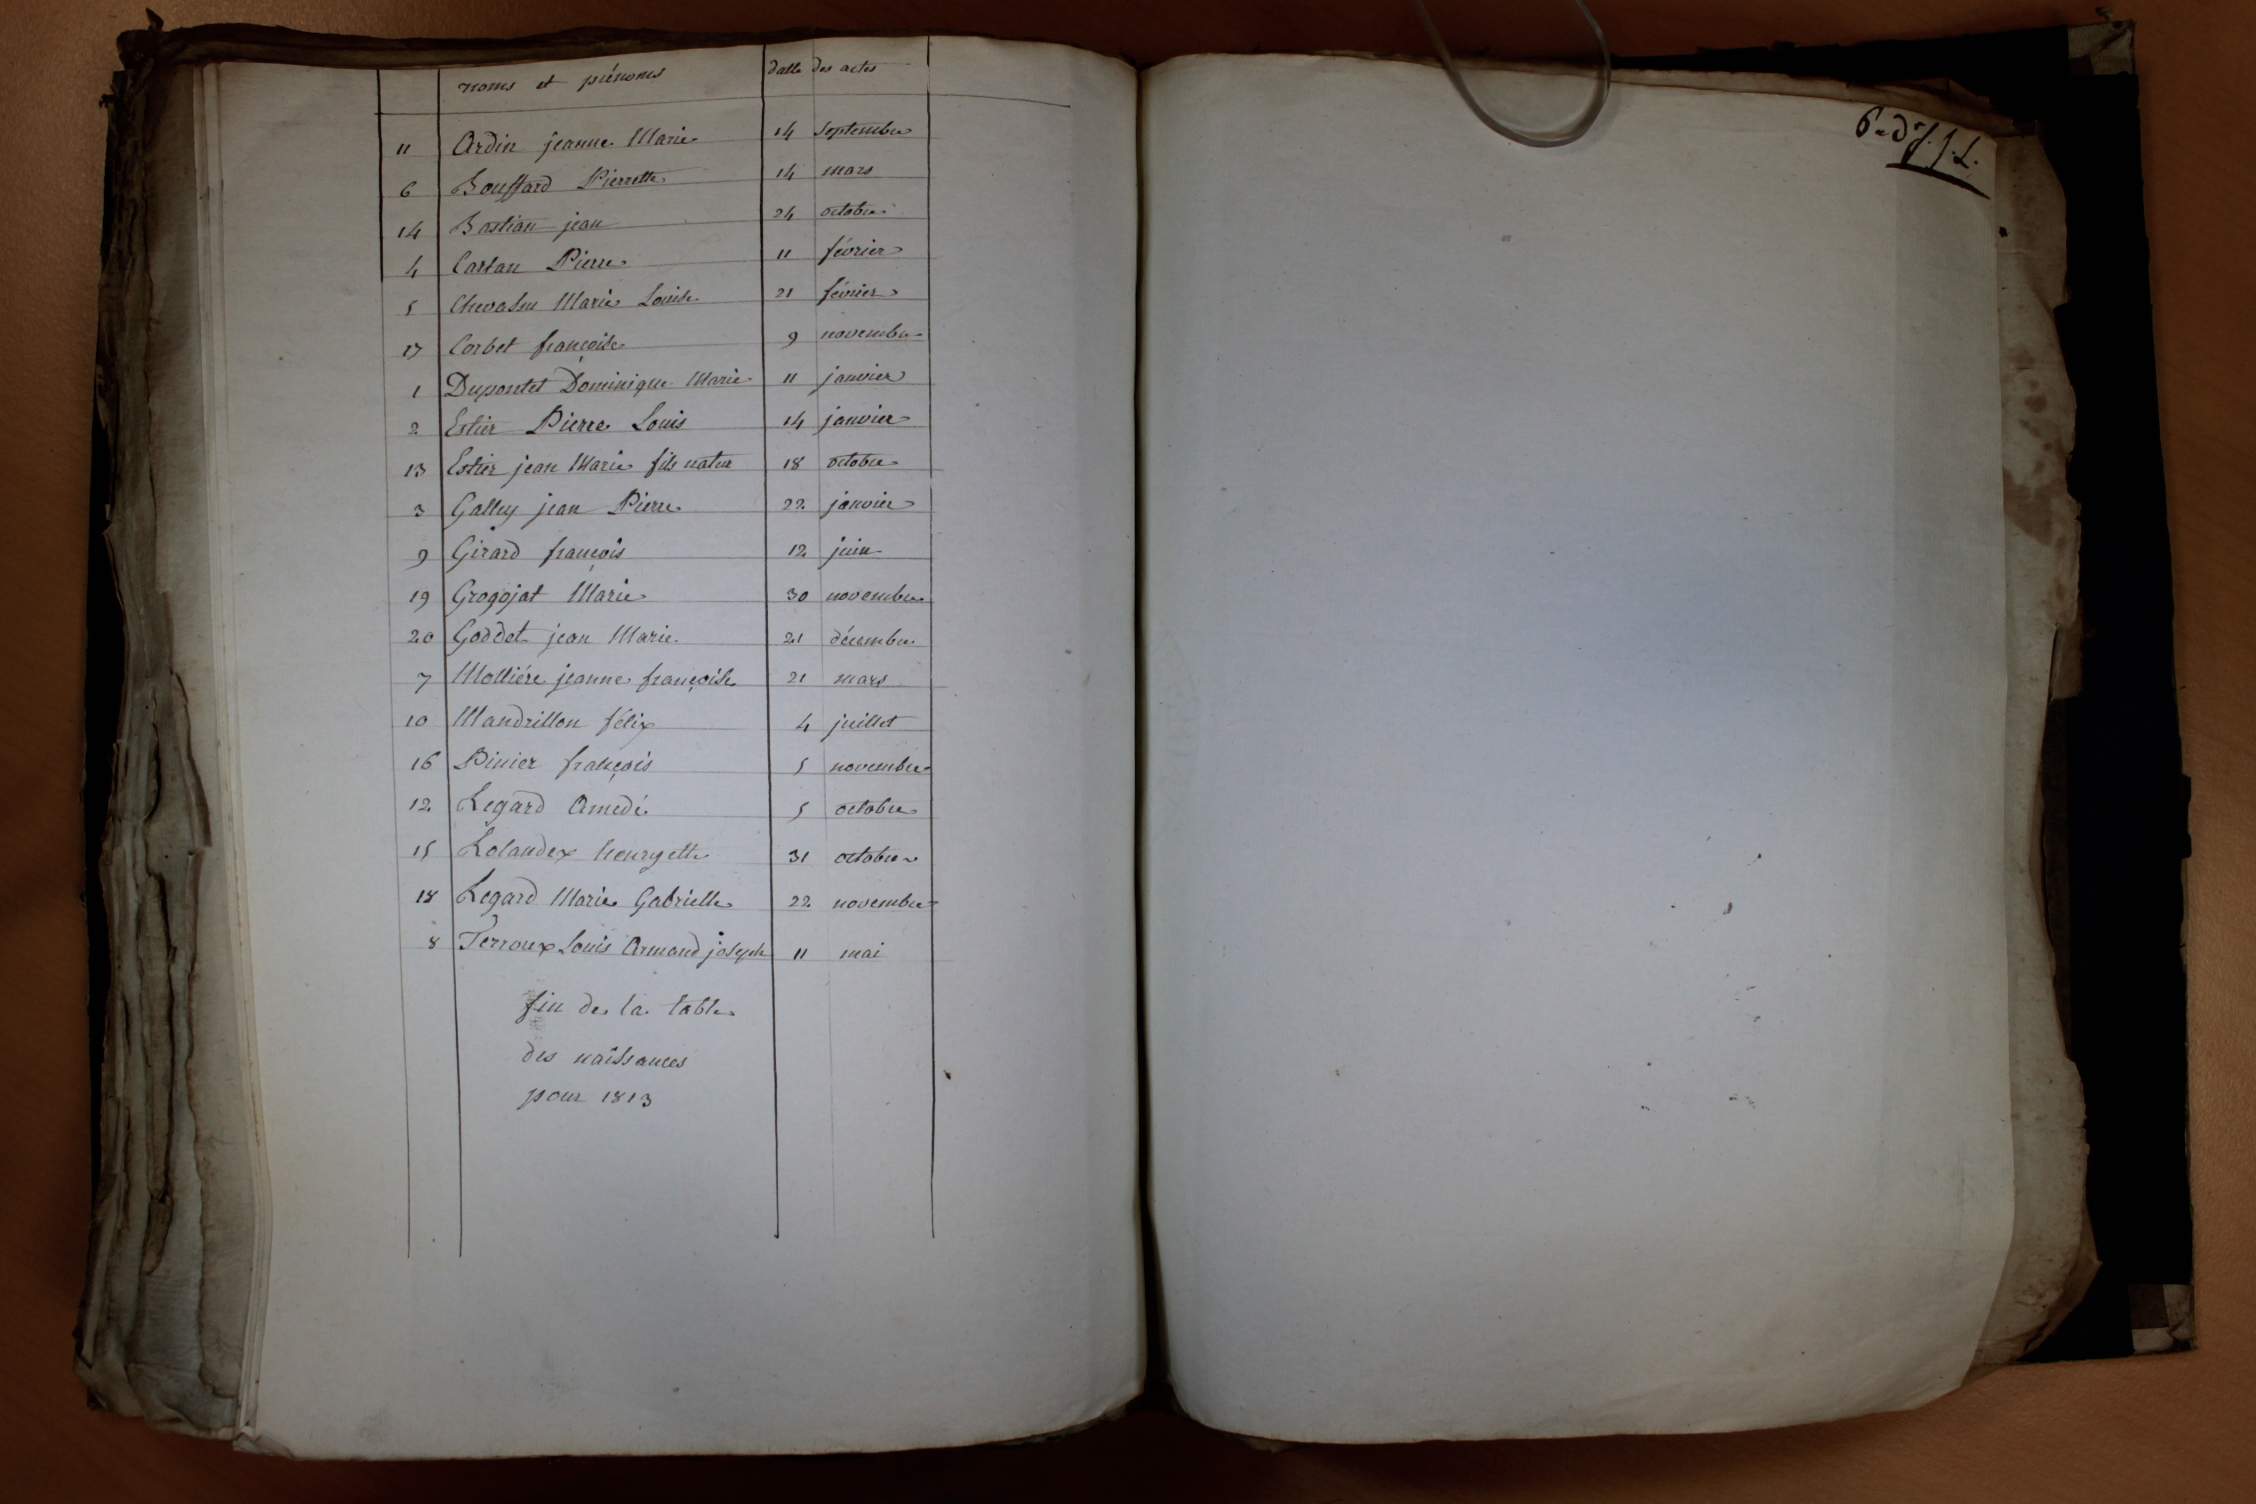 noms et prénoms datte des actes
11 Ardin jeanne Marie 14 septembre
6 Bouffard Pierrette 14 mars
14 Bastian jean 24 octobre
4 Cartan Pierre 11 février
5 Chevassu Marie Louise 21 février
17 Corbet françoise 9 novembre
1 Dupontet Dominique Marie 11 janvier
2 Estier Pierre Louis 14 janvier
13 Estier jean Marie fils natur 18 octobre
3 Galley jean Pierre 22 janvier
9 Girard françois 12 juin
19 Grogojat Marie 30 novembre
20 Goddet jean Marie 21 décembre
7 Molliére jeanne françoise 21 mars
10 Mandrillon félix 4 juillet
16 Pinier françois 5 novembre
12 Regard Amedé 5 octobre
15 Rolandex henryette 31 octobre
18 Regard Marie Gabrielle 22 novembre
8 Terroux Louis Armand joseph 11 mai
fin de la table
des naîssances
pour 1813